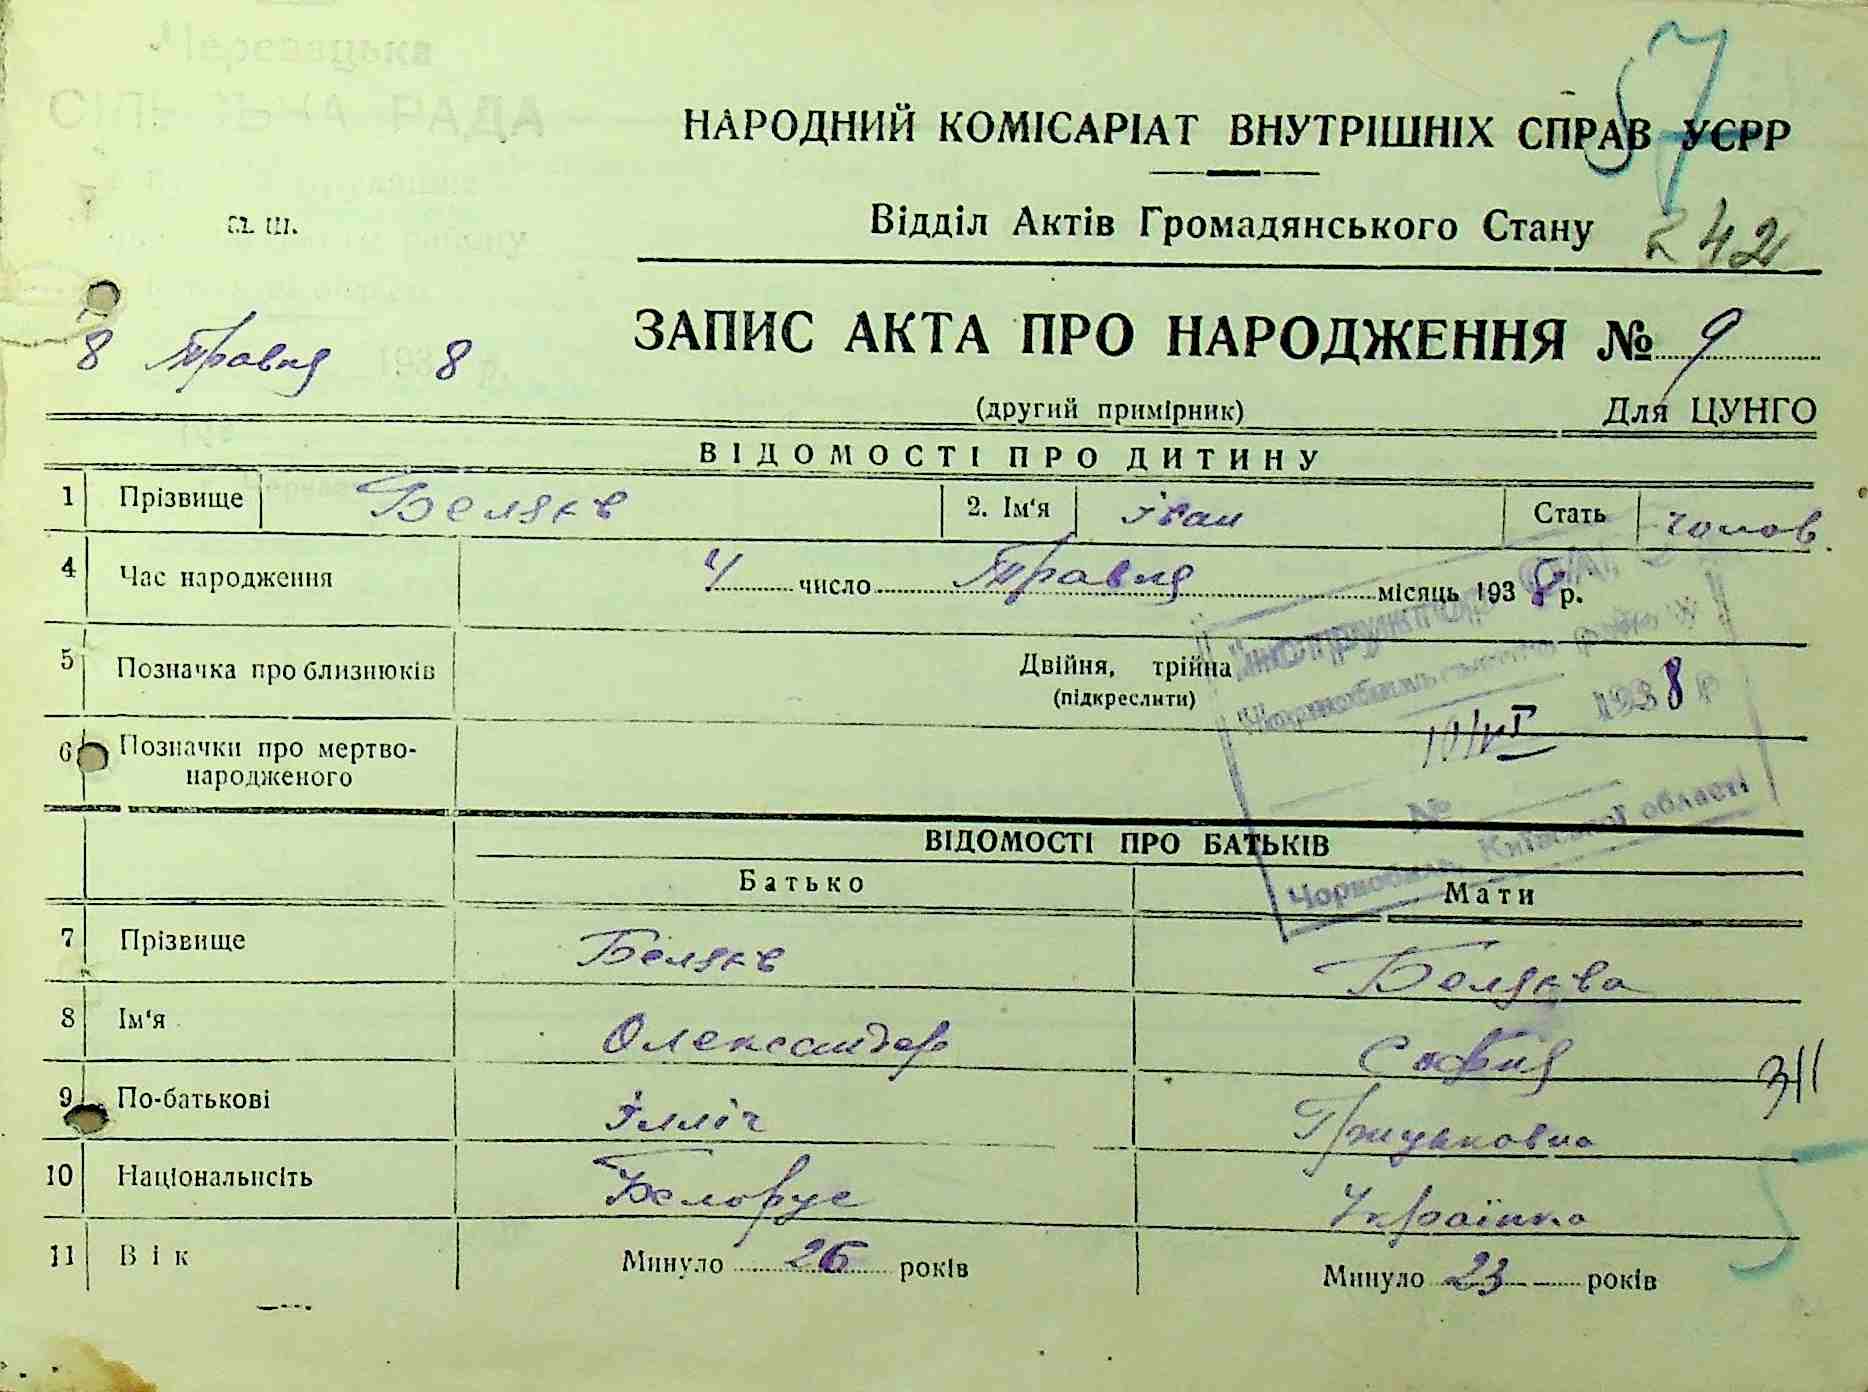 Черевацька
СІЛЬСЬКА РАДА
57
НАРОДНИЙ КОМІСАРІАТ ВНУТРІШНІХ СПРАВ УСРР
Відділ Актів Громадянського Стану
242
8 Травня 1938 р.
ЗАПИС АКТА ПРО НАРОДЖЕННЯ № 9
(другий примірник) Для ЦУНГО
ВІДОМОСТІ ПРО ДИТИНУ
1 Прізвище Беляєв 2. Ім'я Іван Стать чолов.
4 Час народження 4 число Травня місяць 1938 р.
5 Позначка про близнюків Двійня, трійня
(підкреслити)
6 Позначки про мертво-
народженого
Інструктор
Чорнобильського району
10/VI 1938 р
№
Чорнобиль, Київської області
ВІДОМОСТІ ПРО БАТЬКІВ
Батько Мати
7 Прізвище Беляєв Беляєва
8 Ім'я Олександер Софія
311
9 По-батькові Ілліч
10 Національність Белорус Українка
11 Вік Минуло 26 років Минуло 23 років